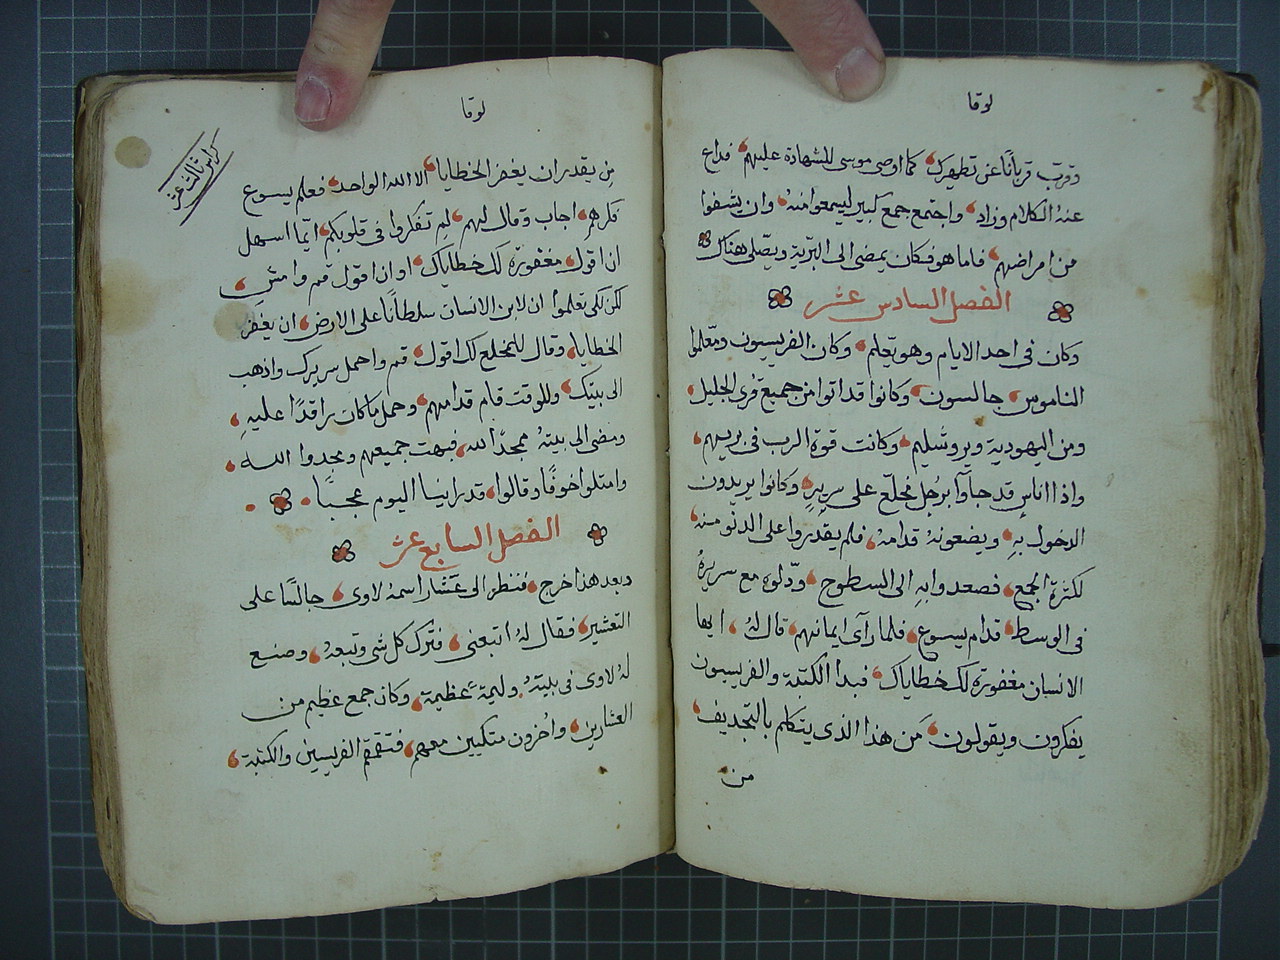 لوقا
وقرّب قربانًا عن تطهيرك كما اوصى موسى للشهادة عليهم فذاع
عنهُ الكلام وزاد واجتمع جمع كبير ليسمعوا منهُ وان يشفوا
من امراضهم فاما هو فكان يمضى الى البرّية ويصّلى هناك
الفصل السادس عشر
وكان فى احد الايام وهو يعلم وكان الفريسيون ومعّلموا
الناموس جالسون وكانوا قد اتوا من جميع قرى الجليل
ومن اليهودية ويروشليم وكانت قوة الرب فى بريهم
واذا اناس قد جآوا برجُل مخلّع على سريرٍ وكانوا يريدون
الدخول بهِ ويضعونهُ قدامهُ فلم يقدروا على الدنّو منه
لكثرة الجمع فصعدوا بهِ الى السطوح ودّلوه مع سريرهُ
فى الوسط قدام يسوع فلما رآى ايمانهم قال لهُ ايها
الانسان مغفورة لك خطاياك فبدا الكتبة والفريسيون
يفكرون ويقولون مَن هذا الذى يتكلم بالتجديف
من
لوقا
كراس ثالث عشر
مِن يقدر ان يغفر الخطايا الا الله الواحد فعلم يسوع
فكرهم اجاب وقال لهم لِم تفكروا فى قلوبكم ايّما اسهل
ان اقول مغفورة لك خطاياك او ان اقول قم وامشِ
لكن لكى تعلموا ان لابن الانسان سلطانًا على الارض ان يغفر
الخطايا وقال للمخلع لك اقول قم واحمل سريرك واذهب
الى بيتك وللوقت قام قدامهم وحمل ما كان راقدًا عليهِ
ومضى الى بيتهُ ممجدًا لله فبهت جميعهم ومجدوا الله
وامتلوا خوفًا وقالوا قد راينا اليوم عجبًا
الفصل السابع عشر
وبعد هذا خرج فنظر الى عَشّار اسمهُ لاوى جالسًا على
التعشير فقال لهُ اتبعنى فترك كل شى وتبعهُ وصنع
لهُ لاوى فى بيتهُ وليمةً عظيمة وكان جمع عظيم من
العشارين واُخرون متكيين معهم فتقمقم الفريسين والكتبة